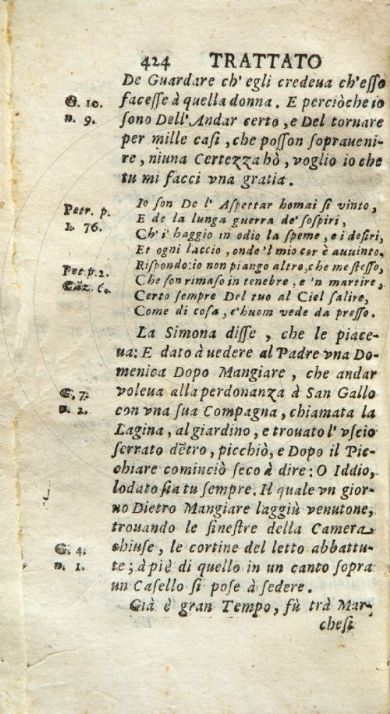 424 TRATTATO
De Guardare ch'egli credeua ch'esso
G. 10. facesse à quella donna. E perciòche io
n. 9. sono Dell'Andar certo, e Del tornare
per mille casi, che posson soprauenire, niuna Certezza hò, voglio io che
tu mi facci vna gratia.
Petr. p. Io son De l' Aspettar homai sì vinto,
E de la lunga guerra de' sospiri,
1. 76. Ch'i haggio in odio la speme, e i desiri,
Et ogni laccio, onde'l mio cor è auuinto.
Pet p. 2. Rispondo: io non piango altro, che me stesso,
Cāz. 6. Che son rimaso in tenebre, e 'n martire,
Certo sempre Del tuo al Ciel salire,
Come di cosa, c'huom vede da presso.
La Simona disse, che le piace-
ua: E dato à uedere al Padre vna Do-
menica Dopo Mangiare, che andar
G. 7. voleua alla perdonanza à San Gallo
n. 2. con vna sua Compagna, chiamata la
Lagina, al giardino, e trouato l' vscio
serrato dētro, picchiò, e Dopo il Pic-
chiare cominciò seco à dire: O Iddio,
lodato sia tu sempre. Il quale vn gior-
no Dietro Mangiare laggiù venutone,
trouando le finestre della Camera
G. 4. chiuse, le cortine del letto abbattu-
n. 1. te; à piè di quello in un canto sopra
un Casello si pose à sedere.
Già è gran Tempo, fù trà Mar-
chesi